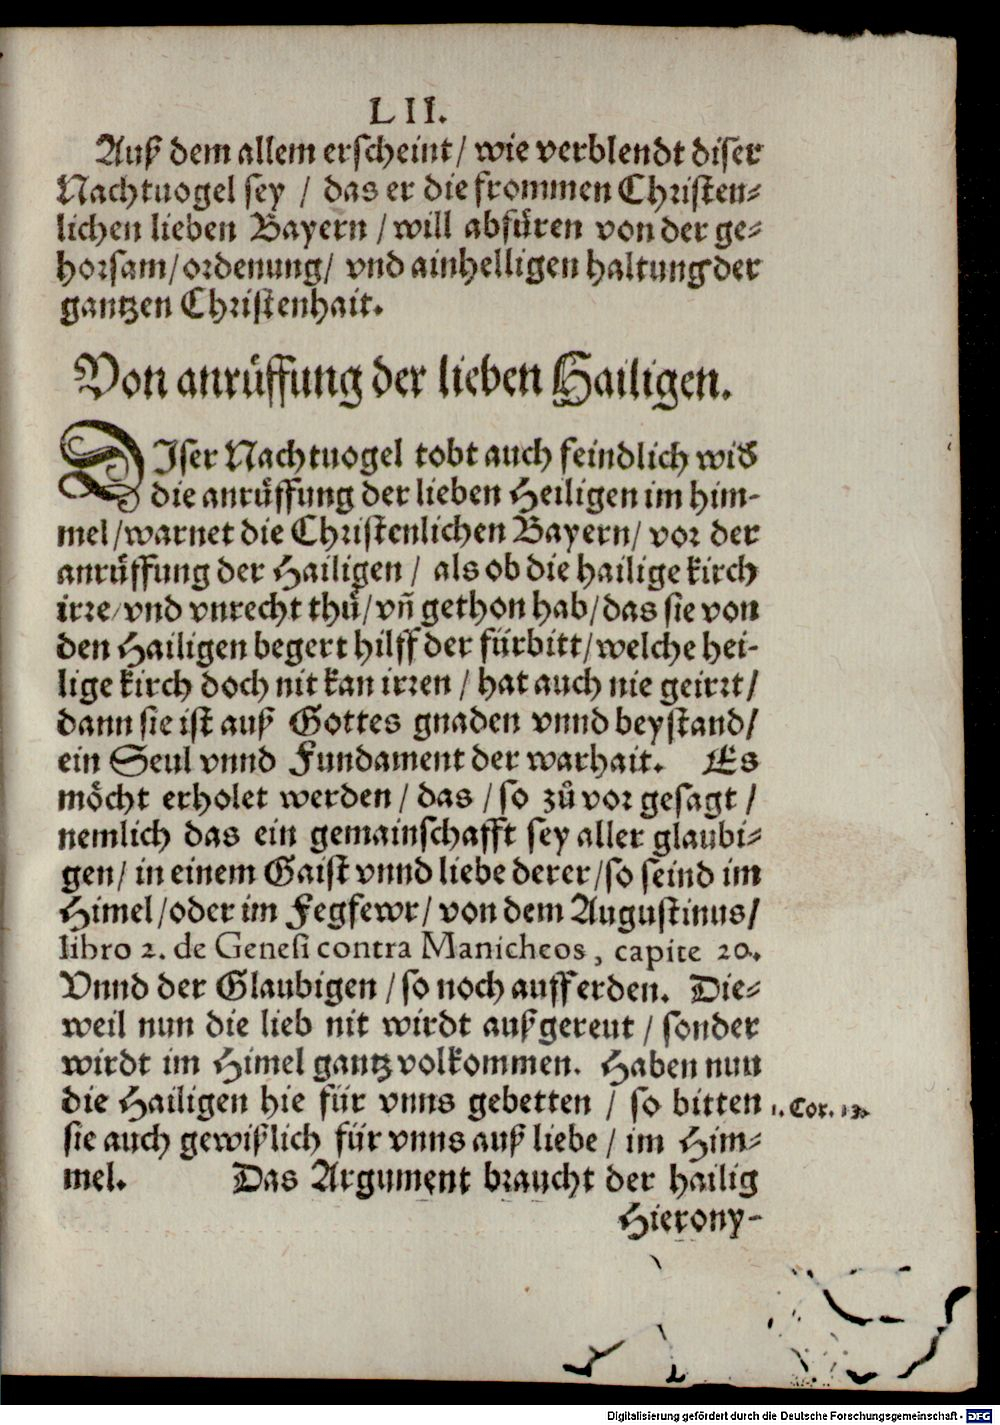 LII.
Auß dem allem erscheint / wie verblendt diser
Nachtuogel sey / das er die frommen Christen-
lichen lieben Bayern / will abfüren von der ge-
horsam / ordenung / vnd ainhelligen haltung der
gantzen Christenhait.
Von anrüffung der lieben Hailigen.
DIser Nachtuogel tobt auch feindlich wid
die anrüffung der lieben Heiligen im him-
mel / warnet die Christenlichen Bayern / vor der
anrüffung der Hailigen / als ob die hailige kirch
irre / vnd vnrecht thü / vñ gethon hab / das sie von
den Hailigen begert hilff der fürbitt / welche hei-
lige kirch doch nit kan irren / hat auch nie geirrt /
dann sie ist auß Gottes gnaden vnnd beystand /
ein Seul vnnd Fundament der warhait. Es
möcht erholet werden / das / so zů vor gesagt /
nemlich das ein gemainschafft sey aller glaubi-
gen / in einem Gaist vnnd liebe derer / so seind im
Himel / oder im Fegfewr / von dem Augustinus /
libro 2. de Genesi contra Manicheos, capite 20.
Vnnd der Glaubigen / so noch auff erden. Die-
weil nun die lieb nit wirdt außgereut / sonder
wirdt im Himel gantz volkommen. Haben nun
die Hailigen hie für vnns gebetten / so bitten
1. Cor. 13.
sie auch gewißlich für vnns auß liebe / im Him-
mel. Das Argument braucht der hailig
Hierony-
Digitalisierung gefördert durch die Deutsche Forschungsgemeinschaft - DFG